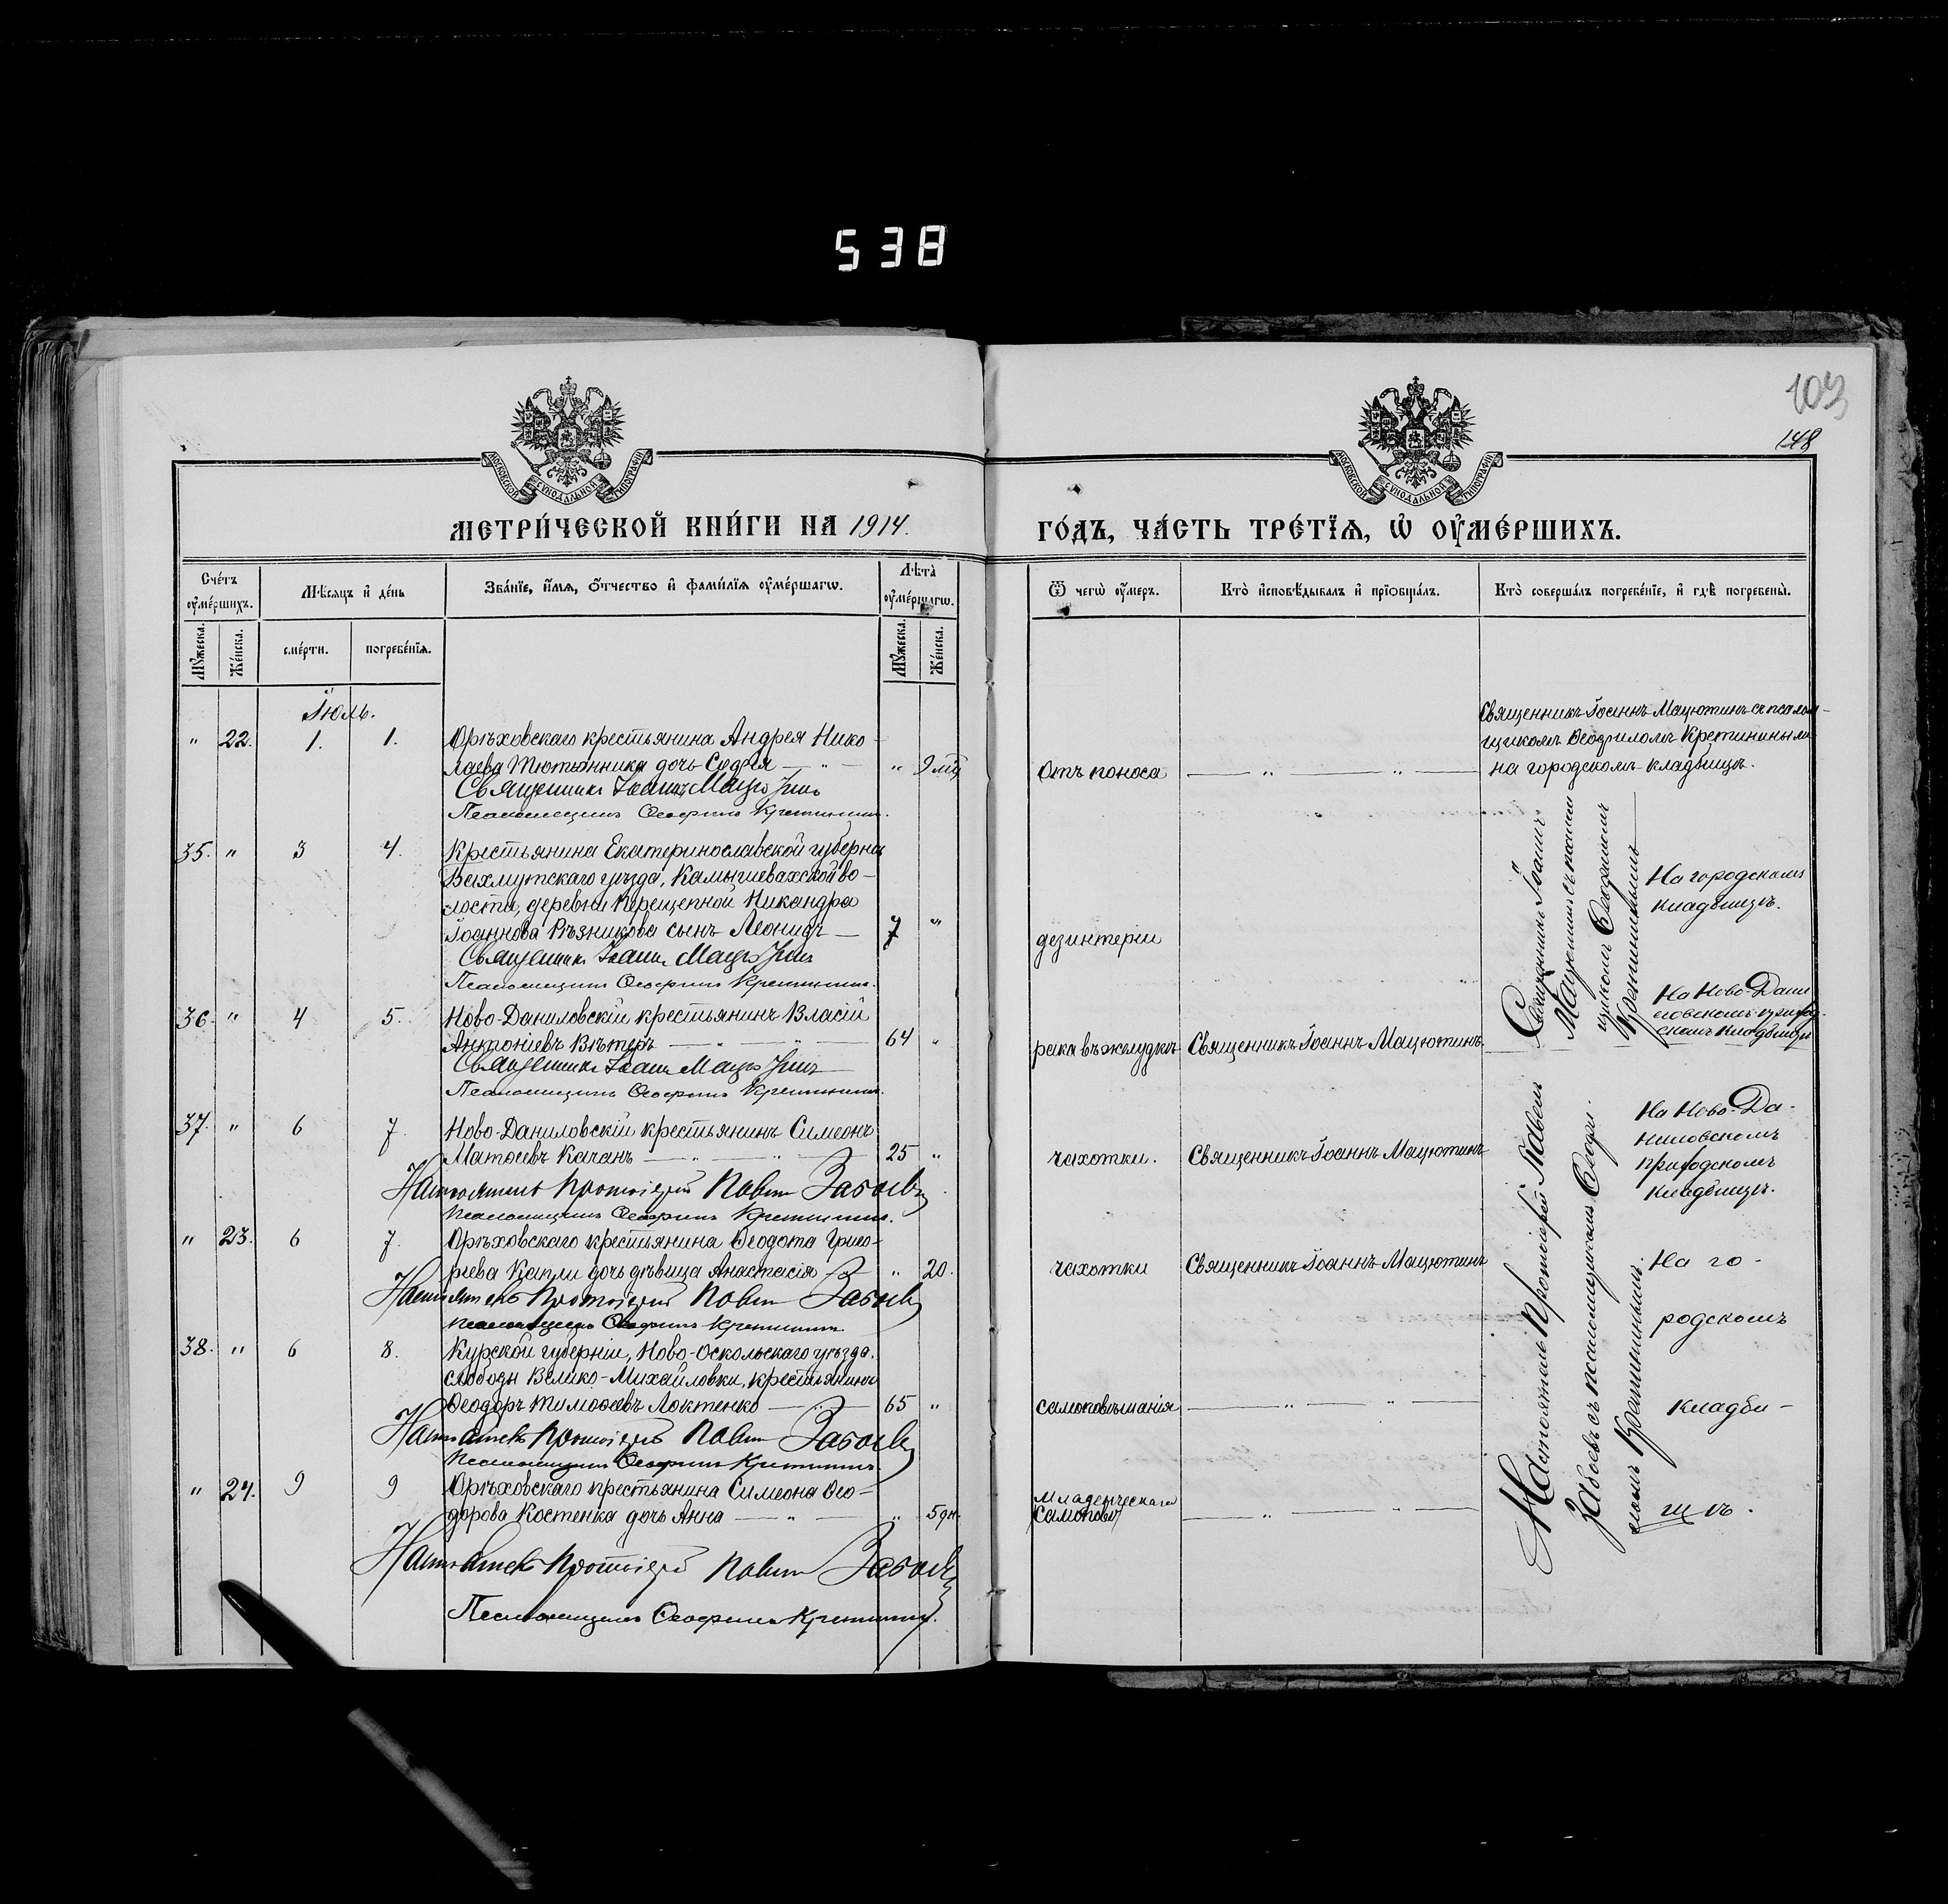 538
103
148
МОСКОВСКОЙ СУНОДАЛЬНОЙ ТИПОГРАФІИ
МОСКОВСКОЙ СУНОДАЛЬНОЙ ТИПОГРАФІИ
МЕТРИ́ЧЕСКОЙ КНИ́ГИ НА 1914.
ГО́ДЪ, ЧА́СТЬ ТРЕ́ТЇѦ, Ѡ҆ ОУ҆МЕ́РШИХЪ.
Сче́тъ оу҆ме́ршихъ.
Мѣ́сѧцъ и҆ де́нь
Зва́нїе, и҆́мѧ, ѻ҆́тчество и҆ фами́лїѧ оу҆ме́ршагѡ.
Лѣта̀ оу҆ме́ршагѡ.
Ѿ чегѡ̀ оу҆́меръ.
Кто̀ и҆сповѣ́дывалъ и҆ прїѡбща́лъ.
Кто̀ соверша́лъ погребе́нїе, и҆ гдѣ̀ погребены̀.
Мꙋ́жеска.
Же́нска.
сме́рти.
погребе́нїѧ.
Мꙋ́жеска.
Же́нска.
Іюль.
" 22. 1. 1. Орѣховскаго крестьянина Андрея Нико-
лаева Тютюнника дочь Софія — " — " 9 мц
Священникъ Іоаннъ Мацютинъ
Псаломщикъ Ѳеофилъ Кретининъ.
Отъ поноса — " — " —
Священникъ Іоаннъ Мацютинъ съ псалом-
щикомъ Ѳеофиломъ Кретининымъ
на городскомъ кладбищѣ.
35. " 3 4. Крестьянина Екатеринославской губерніи
Бахмутскаго уѣзда, Камышевахской во-
лости, деревни Прещепной Никандра
Іоаннова Рѣзникова сынъ Леонидъ — 7 "
Священникъ Іоаннъ Мацютинъ
Псаломщикъ Ѳеофилъ Кретининъ.
дезинтеріи
Священникъ Іоаннъ
Мацютинъ съ псалом
щикомъ Ѳеофиломъ
Кретининымъ
На городскомъ
кладбищѣ.
36. " 4 5. Ново-Даниловскій крестьянинъ Власій
Антоніевъ Вѣтеръ — " — " — 64 "
Священникъ Іоаннъ Мацютинъ
Псаломщикъ Ѳеофилъ Кретининъ.
рака въ желудкѣ Священникъ Іоаннъ Мацютинъ.
На Ново-Дани
ловскомъ приход
скомъ кладбищѣ
37. " 6 7. Ново-Даниловскій крестьянинъ Симеонъ
Матѳіевъ Качанъ — " — " — 25 "
Настоятель Протоіерей Павелъ Забоевъ
Псаломщикъ Ѳеофилъ Кретининъ.
чахотки. Священникъ Іоаннъ Мацютинъ
На Ново-Да-
ниловскомъ
приходскомъ
кладбищѣ.
" 23. 6 7. Орѣховскаго крестьянина Ѳеодота Григо-
рьева Капли дочь дѣвица Анастасія — " 20.
Настоятель Протоіерей Павелъ Забоевъ
Псаломщикъ Ѳеофилъ Кретининъ
чахотки Священникъ Іоаннъ Мацютинъ
Настоятель Протоіерей Павелъ
Забоевъ съ псаломщикомъ Ѳеофи-
ломъ Кретининымъ.
На го-
родскомъ
кладби-
щѣ.
38. " 6 8. Курской губерніи, Ново-Оскольскаго уѣзда,
слободы Велико-Михайловки, крестьянинъ
Ѳеодоръ Тимоѳеевъ Локтенко — " — 65 "
Настоятель Протоіерей Павелъ Забоевъ
Псаломщикъ Ѳеофилъ Кретининъ.
самоповѣшанія — " — " —
" 24. 9 9 Орѣховскаго крестьянина Симеона Ѳео-
дорова Костенка дочь Анна — " — " 5 дн.
Настоятель Протоіерей Павелъ Забоевъ
Псаломщикъ Ѳеофилъ Кретининъ.
Младенческаго
— " — " —